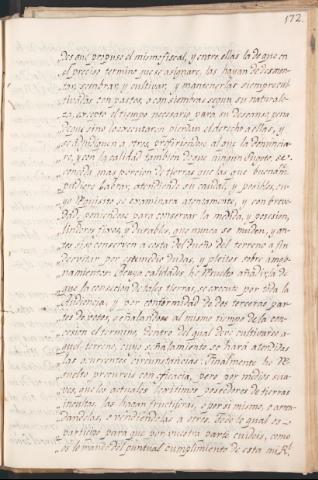 172.
des que propuso el mismo fiscal, y entre ellas la de que en
el preciso termino que se asignare, las hayan de desmon-
tar, sembrar, y cultivar, y mantenerlas siempre cul-
tivadas con pastos, o con siembras segun su naturale-
za, excepto el tiempo necesario para su descanso, pena
de que sino lo executaren pierdan el derecho a ellas, y
se adjudiquen a otros, prefiriendose al que lo denuncia-
re, y con la calidad tambien de que ningun sugeto se
conceda mas porcion de tierras que las que buenam.te
pudiere labrar, atendiendo su caudal, y posibles, cu-
yo requisito se examinara atentamente, y con breve-
dad, poniendose para conservar la medida, y posesion,
linderos fixos, y durables, que nunca se muden, y an-
tes se conserven a costa del dueño del terreno a fin
de evitar por este medio dudas, y pleitos sobre amojo-
namientos: A cuyas calidades he resuelto añadir la de
que la concesion de tales tierras, se execute por toda la
Audiencia, y por conformidad de dos terceras par-
tes de votos, señalandose al mismo tiempo de la con-
cesion el termino, dentro del qual deve cultivarse a-
quel terreno, cuyo señalamiento se hará atendidas
las ocurrentes circunstancias. Finalmente he re-
suelto procureis con eficacia, pero por medios sua-
ves, que los actuales legitimos poseedores de tierras
incultas, las hagan fructiferas, o por si mismos, o arren-
dandolas, o vendiendolas a otros. Todo lo qual os
participo para que por vuestra parte cuideis, como
os lo mando del puntual cumplimiento de esta mi R.l